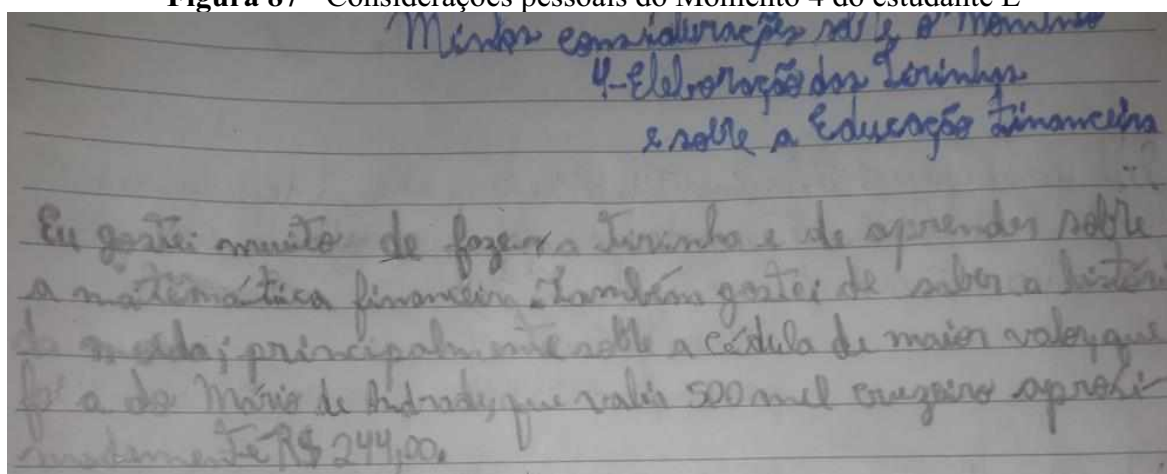 Figura 87 - Considerações pessoais do Momento 4 do estudante E
Minhas considerações sobre o momento
4-Elaboração das Tirinhas
e sobre a Educação Financeira
Eu gostei muito de fazer a Tirinha e de aprender sobre
a matemática financeira. Também gostei de saber a históri
da moeda; principalmente sobre a cédula de maior valor, que
foi a do Mário de Andrade, que valia 500 mil cruzeiro aproxi-
madamente R$ 244,00.